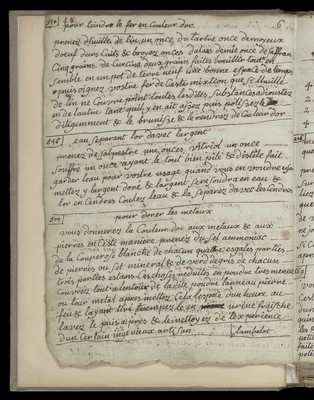 pour teindre le fer en Couleur dor
6
prenez dhuille de lin un once du tartre once de moyeux
doeuf durs Cuits & broyez onces daloes demie once de saffran
Cinq grains de Curcma deux grains faites bouillir tout
semble en un pot de terre neuf une bonne espace de temps
puis oignez vostre fer de Ceste mixtion que sy lhuille
de lin ne Couvre point toutes lesdites substances adioustez
en de lautre tant quil y en ait assez puis polissez le
diligemment & le brunisse & le rendrez de Couleur dor
eau separant lor davec largent
prenez de salpestre une onces, vitriol un once
souffre un once ayant le tout bien pilé & destile fait
garder leau pour vostre usage quand vous en voudrez user
mettez y largent doré & largent sera soudra en eau &
lor en Cendres Coulez leau & la separez davec les Cendres
pour dorer les metaux
vous donnerez la Couleur dor aux metaux & aux
pierres en Ceste maniere prenez du sel ammoniac
de la Couperose blanche de chacun quatre esgales parties
de pierres ou sel mineral & de verd de gris de chacun
trois parties estants Ces choses reduites en poudre tres menue
Couvrez tout alentour de ladite poudre lanneau pierre
ou tout metal apres mettez Cela lespace dune heure au
feu & layant tiré trempez le en urine fraische
lavez le puis apres & le nettoyez de lexperience
dun Certain ingenieux artisan